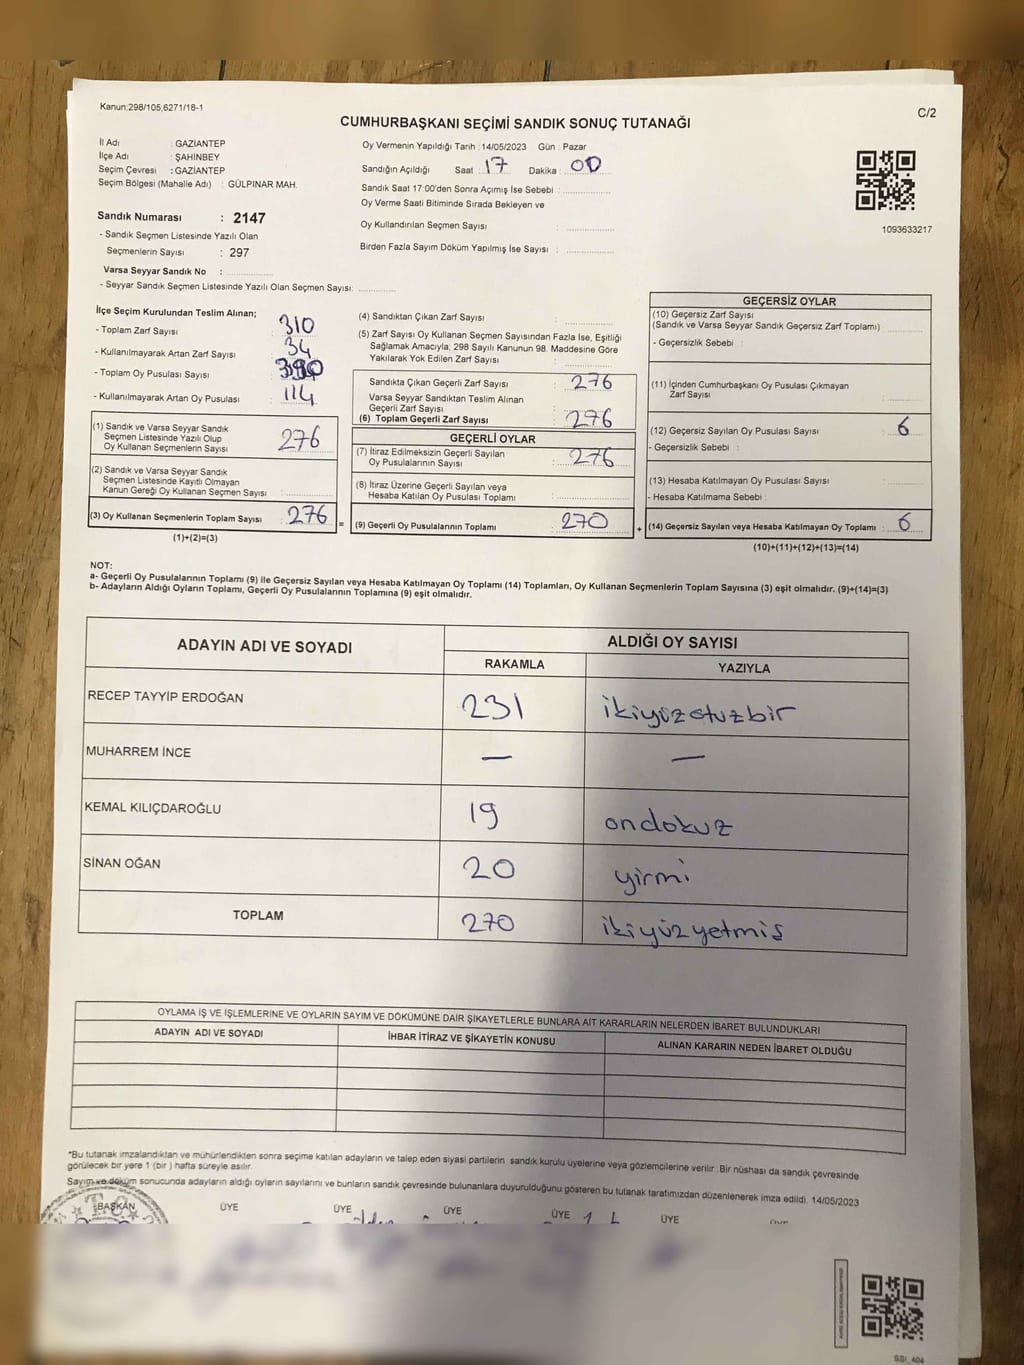 Kanun;298/105;6271/18-1
C/2
CUMHURBAŞKANI SEÇİMİ SANDIK SONUÇ TUTANAĞI
İl Adı : GAZİANTEP
İlçe Adı : ŞAHİNBEY
Seçim Çevresi : GAZİANTEP
Seçim Bölgesi (Mahalle Adı) : GÜLPINAR MAH.
Sandık Numarası : 2147
- Sandık Seçmen Listesinde Yazılı Olan
Seçmenlerin Sayısı : 297
Varsa Seyyar Sandık No :
- Seyyar Sandık Seçmen Listesinde Yazılı Olan Seçmen Sayısı:
Oy Vermenin Yapıldığı Tarih : 14/05/2023 Gün : Pazar
Sandığın Açıldığı Saat : 17 Dakika : 00
Sandık Saat 17:00'den Sonra Açımış İse Sebebi :
Oy Verme Saati Bitiminde Sırada Bekleyen ve
Oy Kullandırılan Seçmen Sayısı :
Birden Fazla Sayım Döküm Yapılmış İse Sayısı :
1093633217
İlçe Seçim Kurulundan Teslim Alınan;
- Toplam Zarf Sayısı : 310
- Kullanılmayarak Artan Zarf Sayısı : 34
- Toplam Oy Pusulası Sayısı :
- Kullanılmayarak Artan Oy Pusulası : 114
(1) Sandık ve Varsa Seyyar Sandık
Seçmen Listesinde Yazılı Olup
Oy Kullanan Seçmenlerin Sayısı : 276
(2) Sandık ve Varsa Seyyar Sandık
Seçmen Listesinde Kayıtlı Olmayan
Kanun Gereği Oy Kullanan Seçmen Sayısı :
(3) Oy Kullanan Seçmenlerin Toplam Sayısı : 276 =
(1)+(2)=(3)
(4) Sandıktan Çıkan Zarf Sayısı :
(5) Zarf Sayısı Oy Kullanan Seçmen Sayısından Fazla İse, Eşitliği
Sağlamak Amacıyla; 298 Sayılı Kanunun 98. Maddesine Göre
Yakılarak Yok Edilen Zarf Sayısı :
Sandıkta Çıkan Geçerli Zarf Sayısı : 276
Varsa Seyyar Sandıktan Teslim Alınan
Geçerli Zarf Sayısı :
(6) Toplam Geçerli Zarf Sayısı : 276
GEÇERLİ OYLAR
(7) İtiraz Edilmeksizin Geçerli Sayılan
Oy Pusulalarının Sayısı : 276
(8) İtiraz Üzerine Geçerli Sayılan veya
Hesaba Katılan Oy Pusulası Toplamı :
(9) Geçerli Oy Pusulalarının Toplamı : 270 +
GEÇERSİZ OYLAR
(10) Geçersiz Zarf Sayısı
(Sandık ve Varsa Seyyar Sandık Geçersiz Zarf Toplamı) :
- Geçersizlik Sebebi :
(11) İçinden Cumhurbaşkanı Oy Pusulası Çıkmayan
Zarf Sayısı :
(12) Geçersiz Sayılan Oy Pusulası Sayısı : 6
- Geçersizlik Sebebi :
(13) Hesaba Katılmayan Oy Pusulası Sayısı :
- Hesaba Katılmama Sebebi :
(14) Geçersiz Sayılan veya Hesaba Katılmayan Oy Toplamı : 6
(10)+(11)+(12)+(13)=(14)
NOT:
a- Geçerli Oy Pusulalarının Toplamı (9) ile Geçersiz Sayılan veya Hesaba Katılmayan Oy Toplamı (14) Toplamları, Oy Kullanan Seçmenlerin Toplam Sayısına (3) eşit olmalıdır. (9)+(14)=(3)
b- Adayların Aldığı Oyların Toplamı, Geçerli Oy Pusulalarının Toplamına (9) eşit olmalıdır.
ADAYIN ADI VE SOYADI ALDIĞI OY SAYISI
RAKAMLA YAZIYLA
RECEP TAYYİP ERDOĞAN 231 ikiyüzotuzbir
MUHARREM İNCE — —
KEMAL KILIÇDAROĞLU 19 ondokuz
SİNAN OĞAN 20 yirmi
TOPLAM 270 ikiyüzyetmiş
OYLAMA İŞ VE İŞLEMLERİNE VE OYLARIN SAYIM VE DÖKÜMÜNE DAİR ŞİKAYETLERLE BUNLARA AİT KARARLARIN NELERDEN İBARET BULUNDUKLARI
ADAYIN ADI VE SOYADI İHBAR İTİRAZ VE ŞİKAYETİN KONUSU ALINAN KARARIN NEDEN İBARET OLDUĞU
*Bu tutanak imzalandıktan ve mühürlendikten sonra seçime katılan adayların ve talep eden siyasi partilerin sandık kurulu üyelerine veya gözlemcilerine verilir. Bir nüshası da sandık çevresinde
görülecek bir yere 1 (bir ) hafta süreyle asılır.
Sayım ve döküm sonucunda adayların aldığı oyların sayılarını ve bunların sandık çevresinde bulunanlara duyurulduğunu gösteren bu tutanak tarafımızdan düzenlenerek imza edildi. 14/05/2023
BAŞKAN ÜYE ÜYE ÜYE ÜYE ÜYE